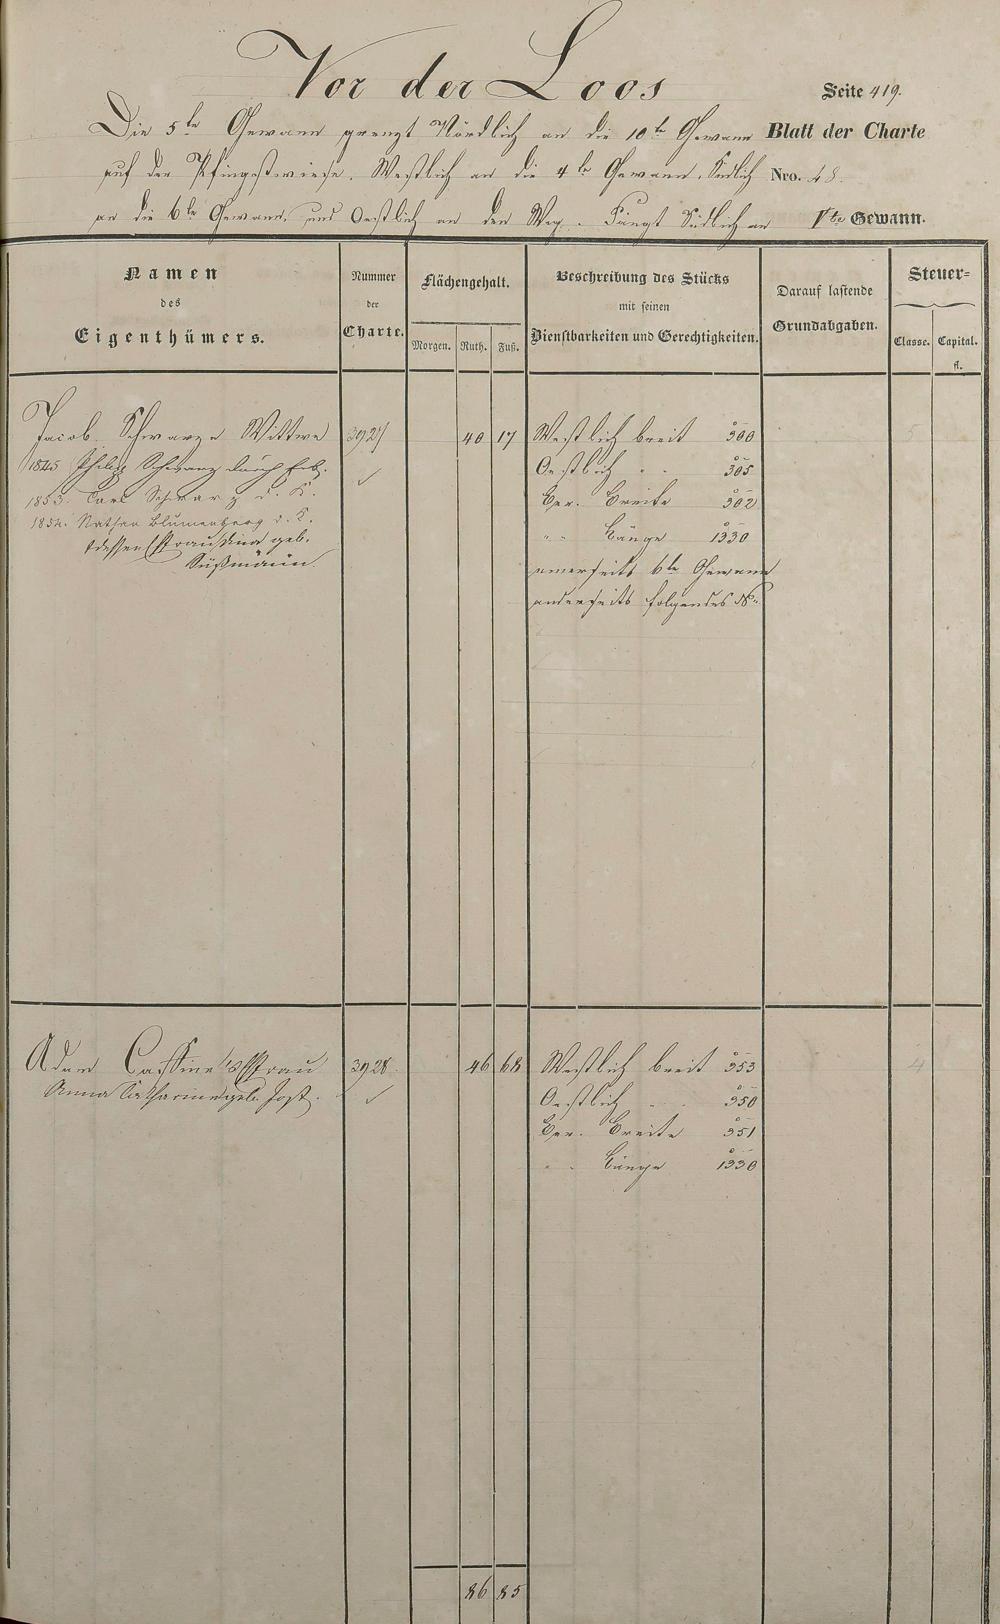 Vor der Loos
Seite 419.
Die 5te Gewann grenzt Nördlich an die 10te Gewann
Blatt der Charte
auf der Pfingstwiese. Westlich an die 4te Gewann, Südlich
Nro. 48.
an die 6te Gewann, und Oestlich an den Weg. Fängt Südlich an
Vte Gewann.
Namen
des
Eigenthümers.
Nummer
der
Charte.
Flächengehalt.
Morgen. Ruth. Fuß.
Beschreibung des Stücks
mit seinen
Dienstbarkeiten und Gerechtigkeiten.
Darauf lastende
Grundabgaben.
Steuer-
Classe. Capital.
fl.
Jacob Schwarz Wittwe 3927 40 17 Westlich breit 300 5
1845 Philipp Schwarz durch Erb. Oestlich " " 305
1853. Carl Schwarz d. K. Ger. Breite 302
1854. Nathan Blumenberg d. K. " " Länge 1330
dessen Ehefrau Dina geb. einerseits 6te Gewann
Süßmann. anderseits folgendes No
Adam Cassine's Ehefrau 3928. 46 68 Westlich breit 353 4
Anna Catharine geb. Jost. Oestlich " " 350
Ger. Breite 351
" " Länge 1330
86 85